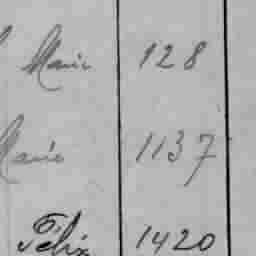 Marie 128
Marie 1137
Félix 1420